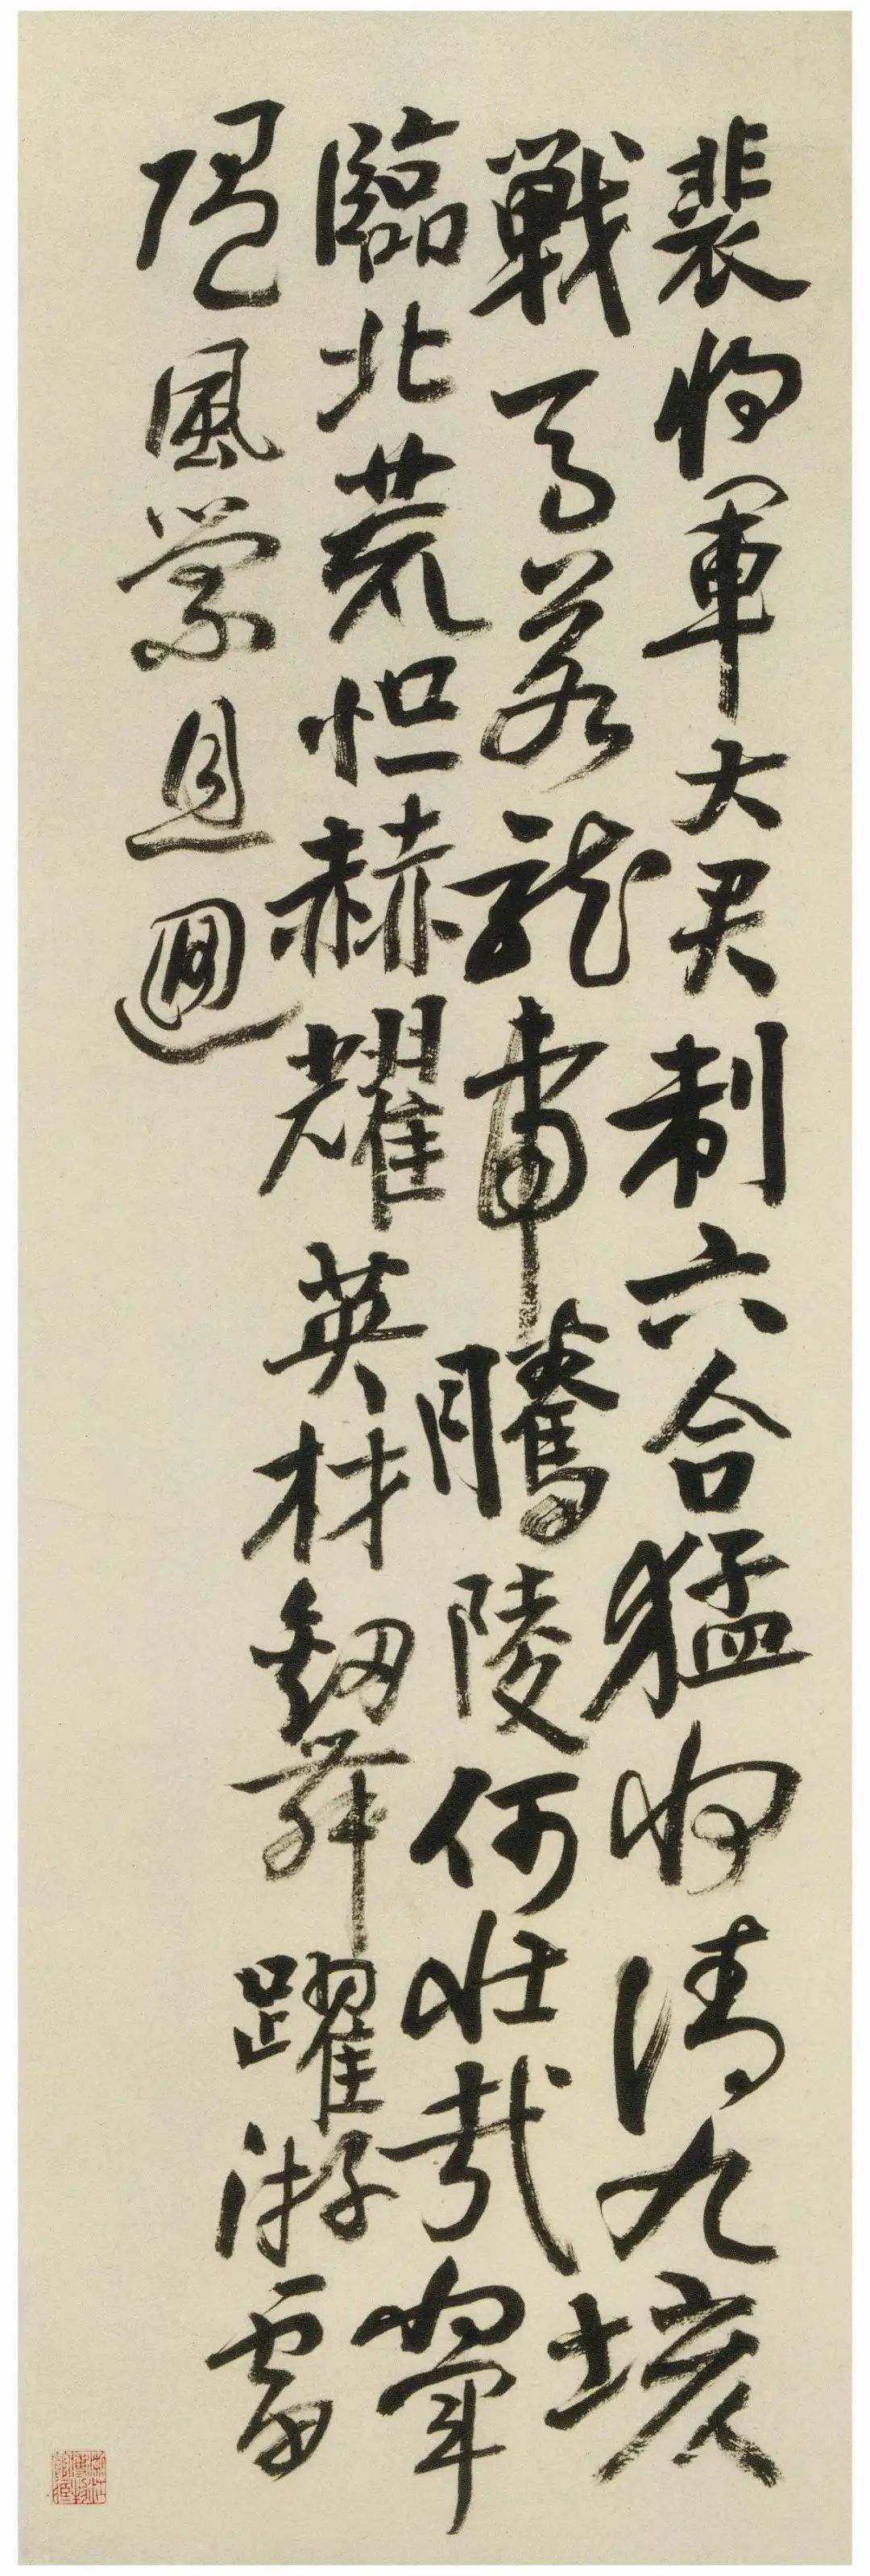 裴将軍大君制六合猛将清九垓
戦馬若龍虎騰陵何壮哉将軍
臨北荒恒赫耀英材劒舞躍游雷
随風縈且迴